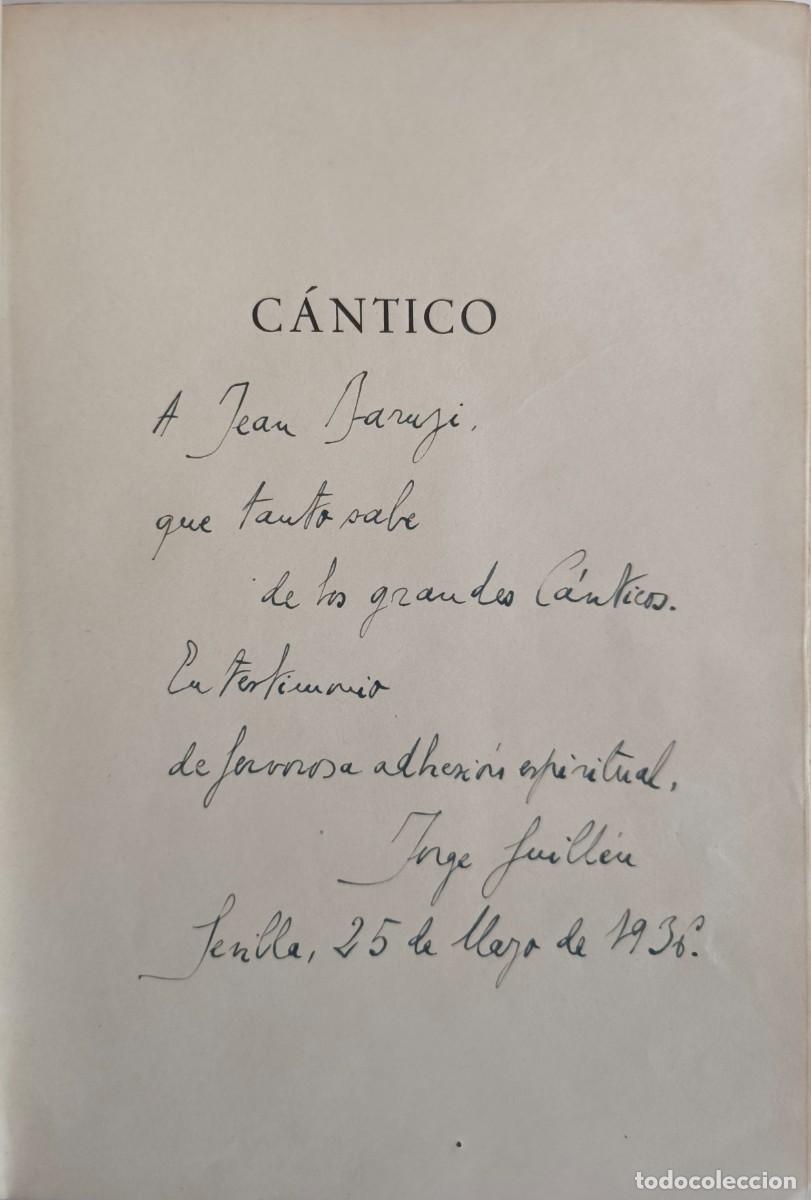 CÁNTICO
A Jean Baruzi,
que tanto sabe
de los grandes Cánticos.
En testimonio
de fervorosa adhesión espiritual,
Jorge Guillén
Sevilla, 25 de Mayo de 1936.
todocoleccion